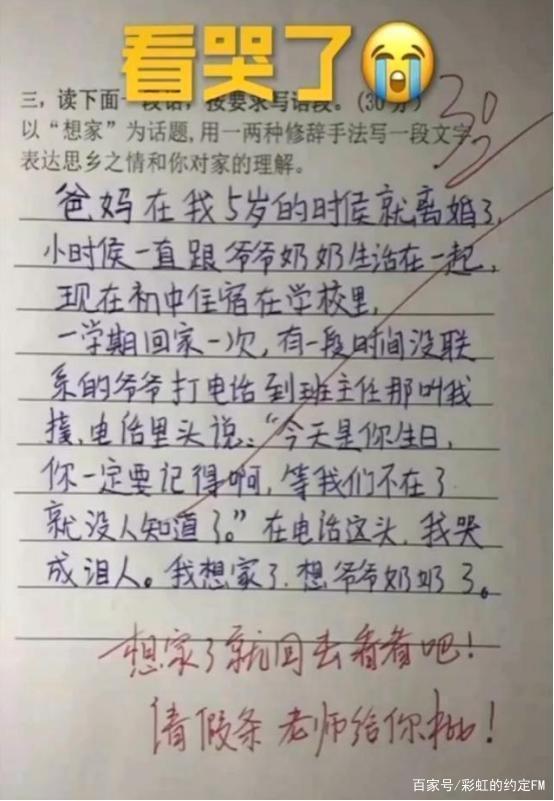 看哭了
三，读下面一段话，按要求写话段。(30分)
30
以“想家”为话题,用一两种修辞手法写一段文字
表达思乡之情和你对家的理解。
爸妈在我5岁的时侯就离婚了,
小时侯一直跟爷爷奶奶生活在一起,
现在初中住宿在学校里,
一学期回家一次，有一段时间没联
系的爷爷打电话到班主任那叫我
接,电话里头说：“今天是你生日,
你一定要记得啊，等我们不在了
就没人知道了。”在电话这头,我哭
成泪人。我想家了.想爷爷奶奶了。
想家了就回去看看吧！
请假条老师给你批！
百家号/彩虹的约定FM